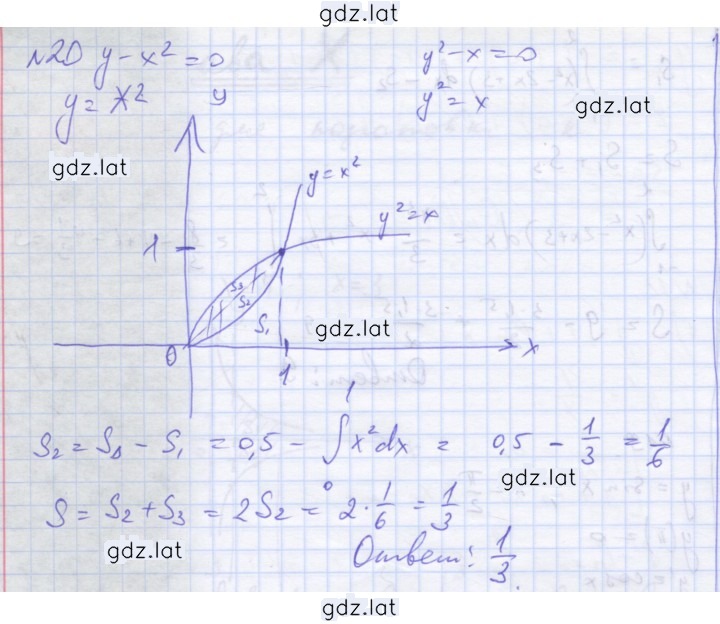 gdz.lat
№20 y - x² = 0
y² - x = 0
y = x²
y² = x
gdz.lat
gdz.lat
y
y = x²
y² = x
1
S₃
S₂
S₁
gdz.lat
0
1
x
S₂ = S_Δ - S₁ = 0,5 - ∫₀¹ x²dx = 0,5 - 1/3 = 1/6
gdz.lat
S = S₂ + S₃ = 2S₂ = 2·1/6 = 1/3
gdz.lat
Ответ: 1/3.
gdz.lat